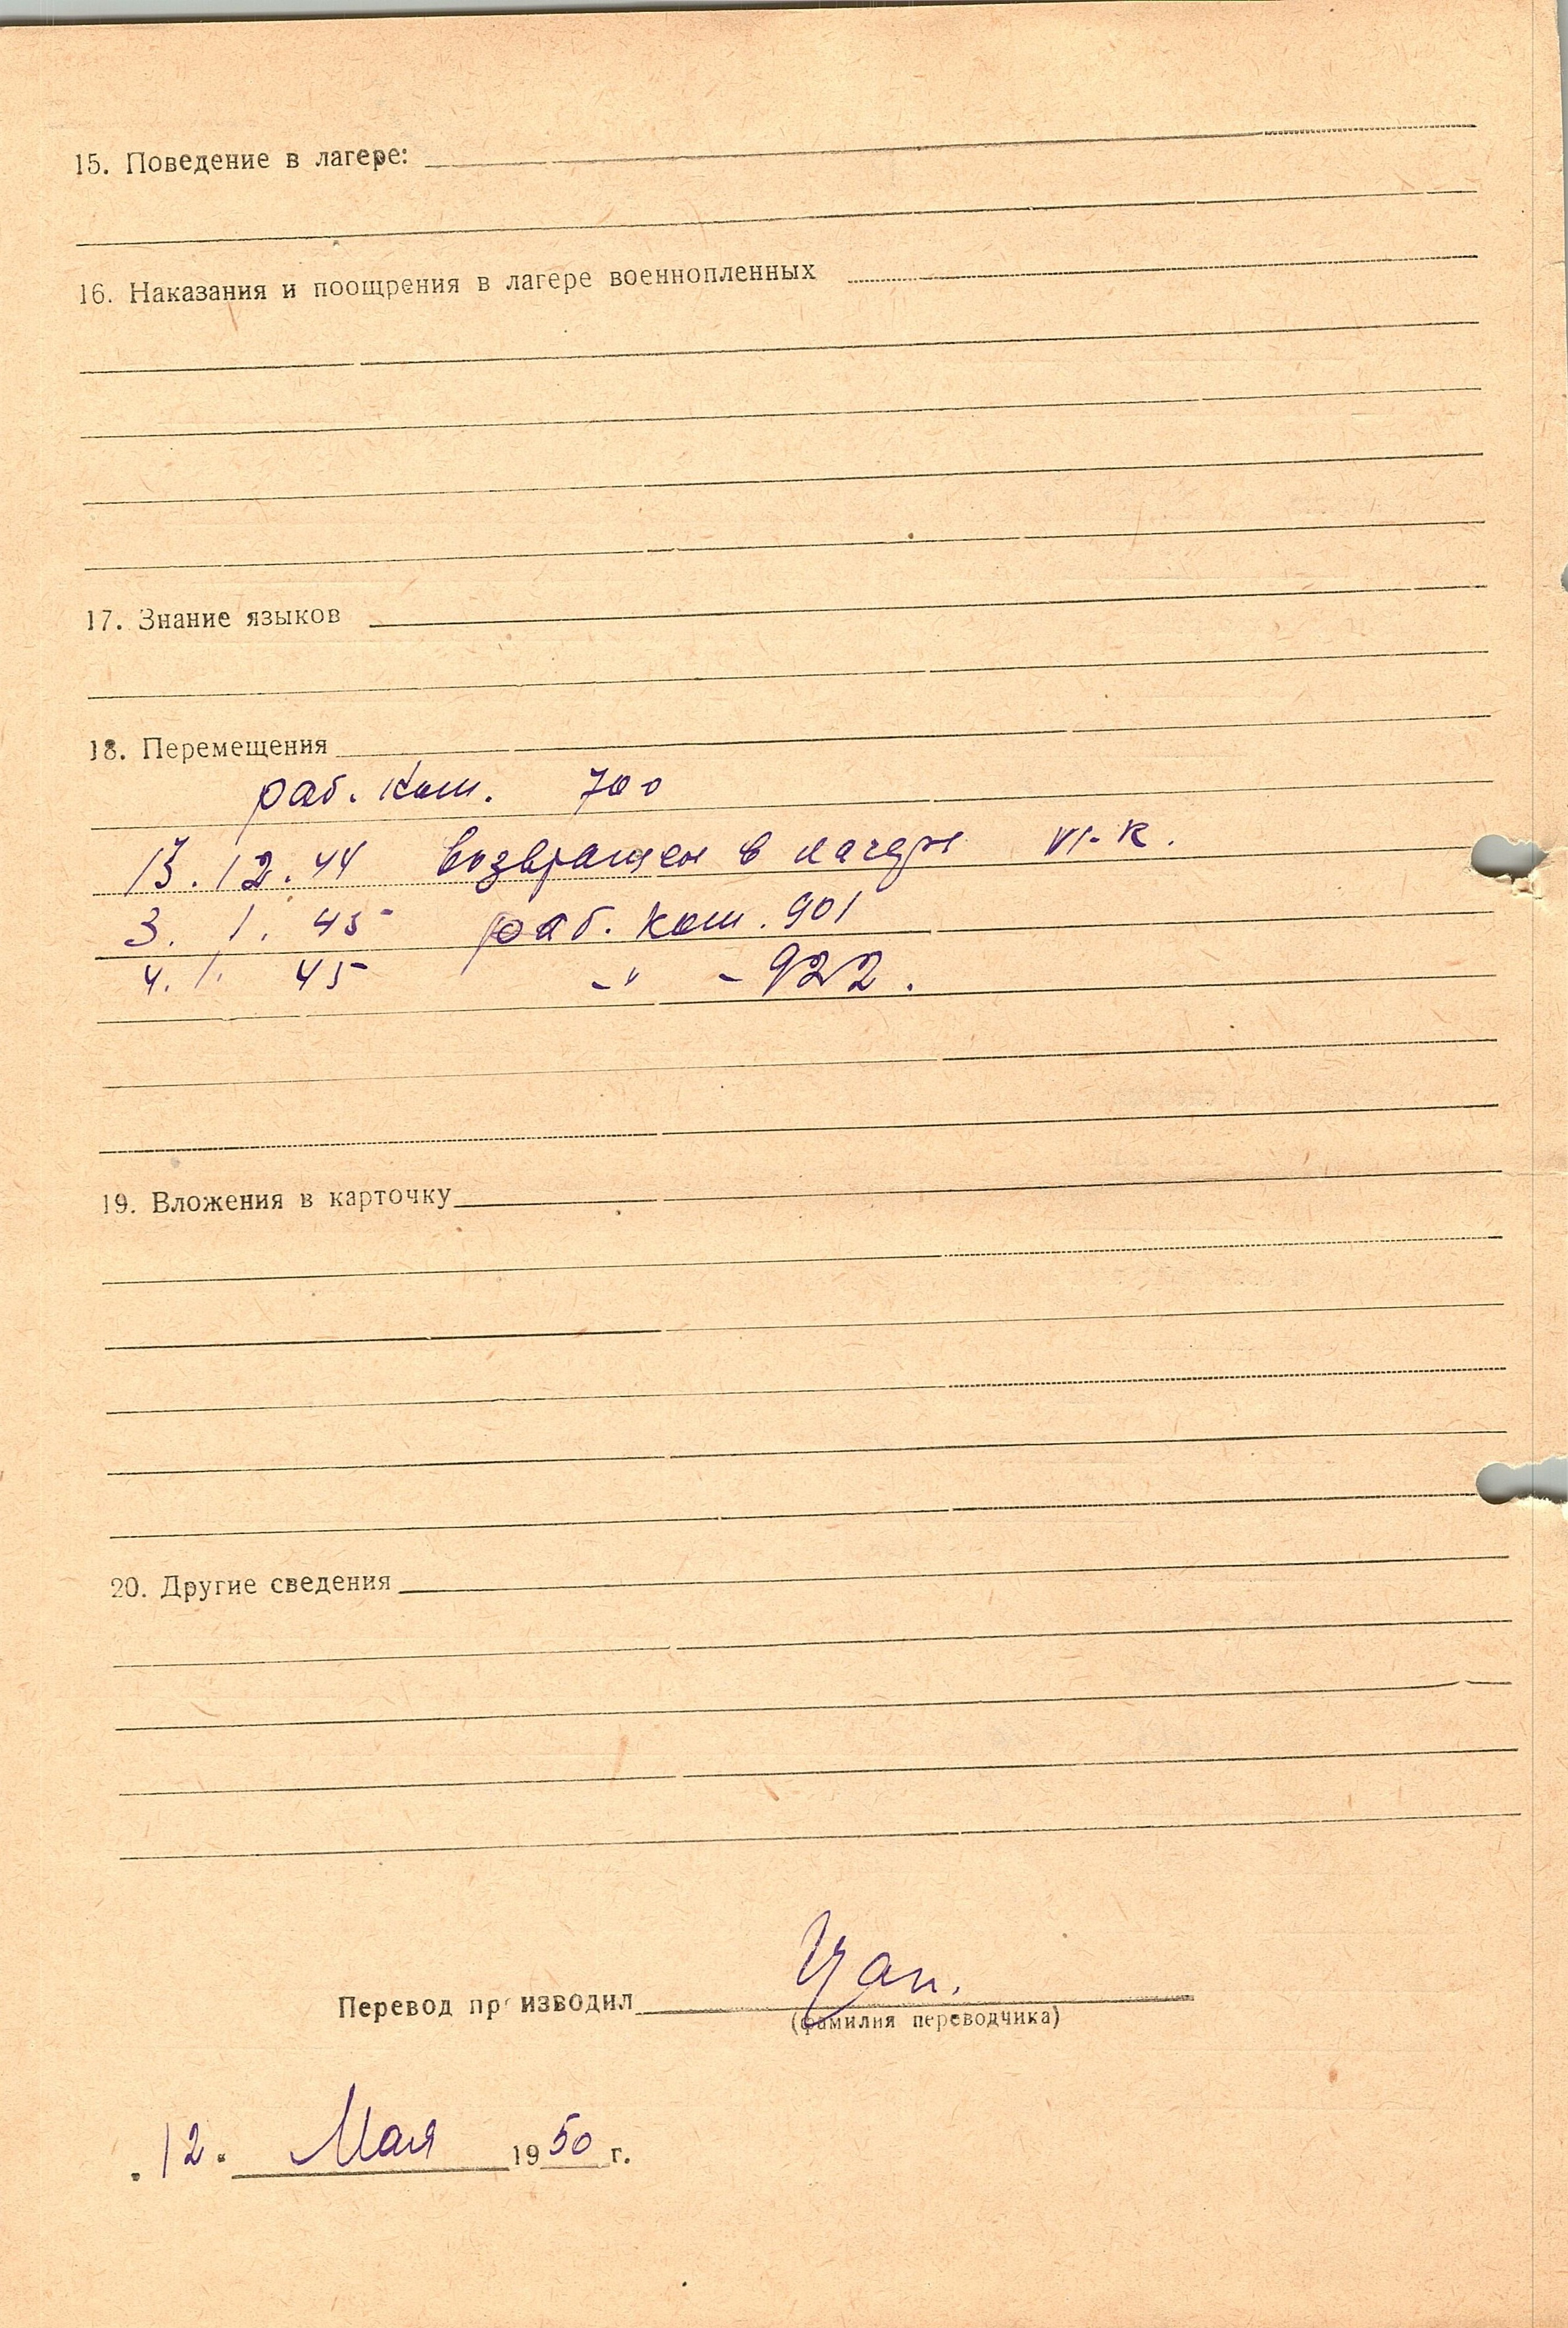 15. Поведение в лагере:
16. Наказания и поощрения в лагере военнопленных
17. Знание языков
18. Перемещения
раб. ком. 700
13.12.44 возвращен в лагерь VI-К.
3. 1. 45 раб. ком. 901
4. 1. 45 -"- 922.
19. Вложения в карточку
20. Другие сведения
Перевод производил
(фамилия переводчика)
12. Мая 1950 г.